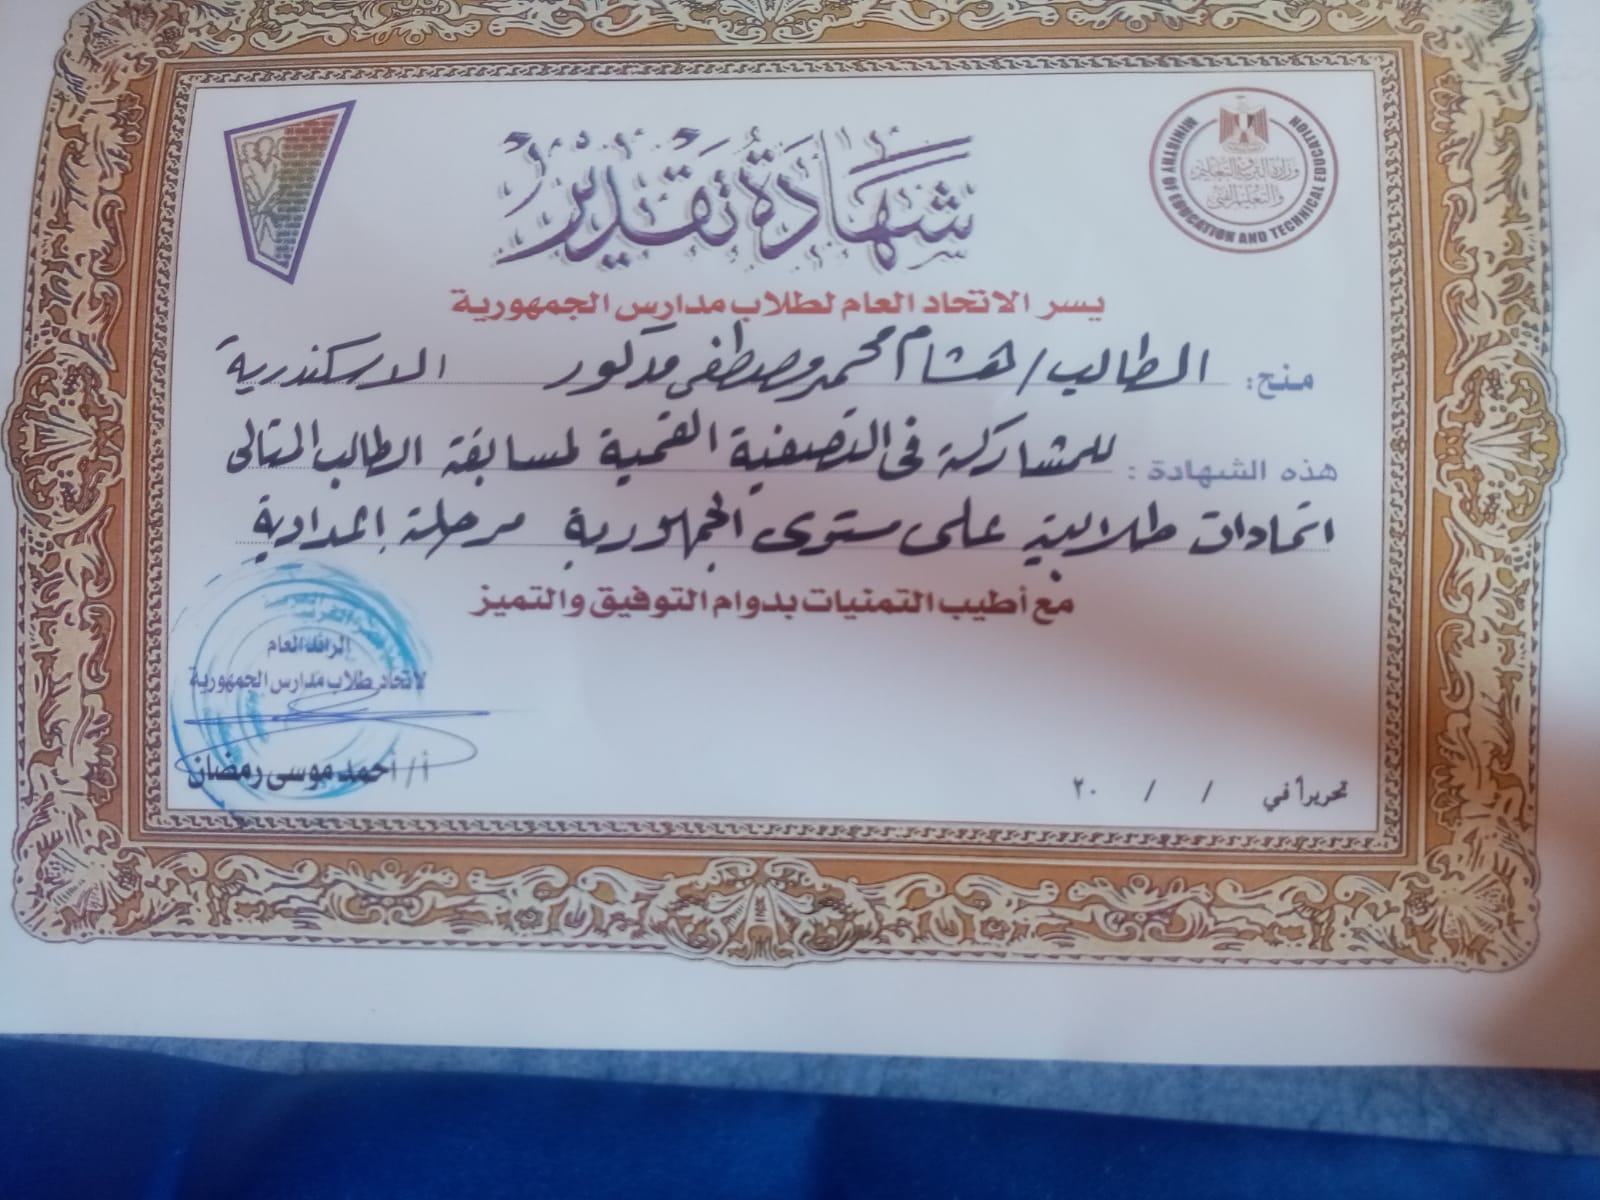 شهادة تقدير
وزارة التربية والتعليم
والتعليم الفني
MINISTRY OF EDUCATION AND TECHNICAL EDUCATION
يسر الاتحاد العام لطلاب مدارس الجمهورية
منح: الطالب/ هشام محمد مصطفى مدكور الاسكندرية
هذه الشهادة : للمشاركة فى التصفية القمية لمسابقة الطالب المثالى
اتحادات طلابية على مستوى الجمهورية مرحلة إعدادية
مع أطيب التمنيات بدوام التوفيق والتميز
الرائد العام
لاتحاد طلاب مدارس الجمهورية
أ/ أحمد موسى رمضان
تحريراً في / / ٢٠